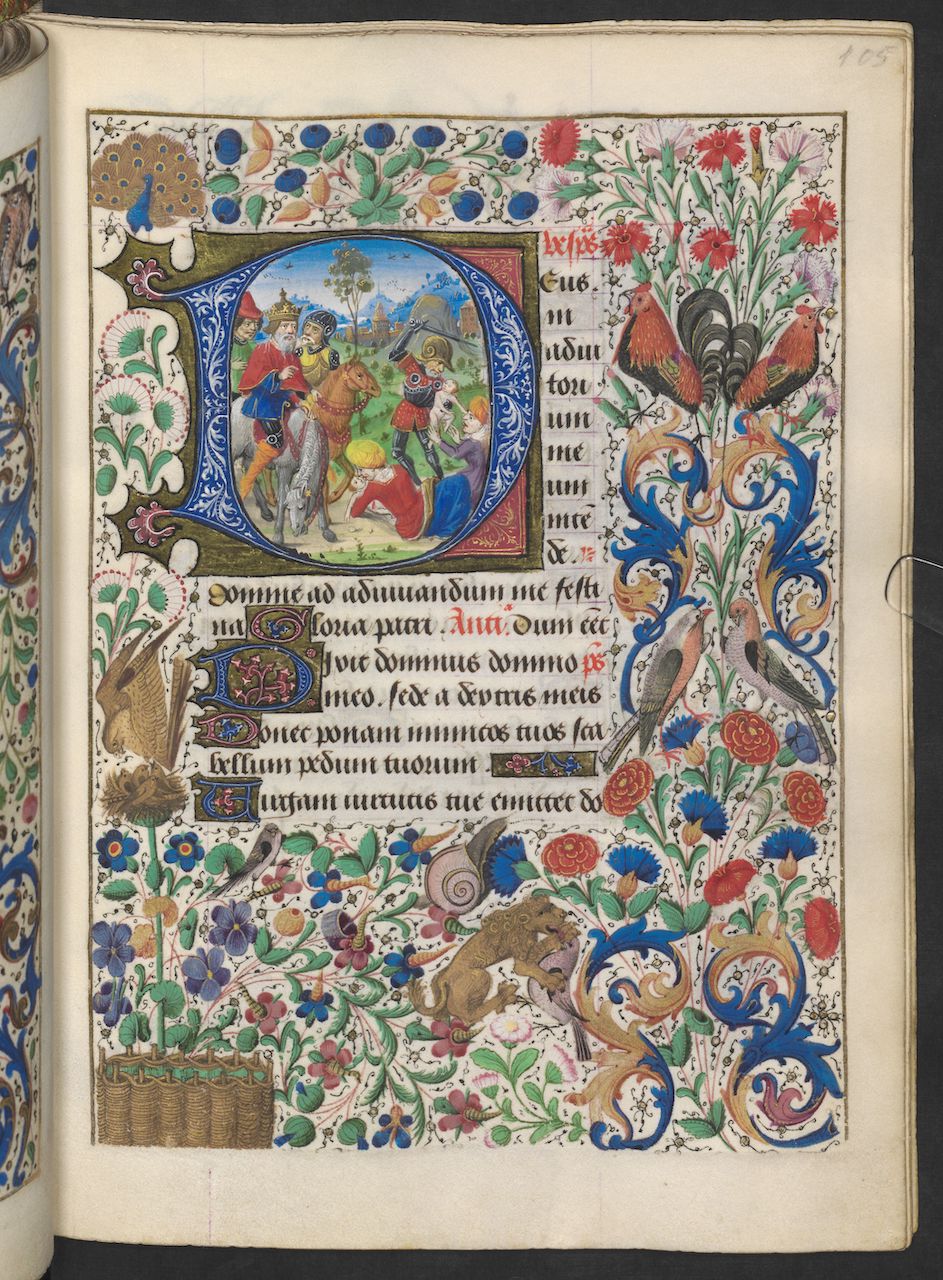 105
D
vesp̄s
Eus.
in
adiu
tori
um
me
um
intē
de.
Domine ad adiuuandum me festi
na Gloria patri. Antiᵃ. Dum eēt
Dixit dominus domino p̄s
meo. sede a dextris meis
Donec ponam inimicos tuos sca-
bellum pedum tuorum
Virgam uirtutis tue emittet do